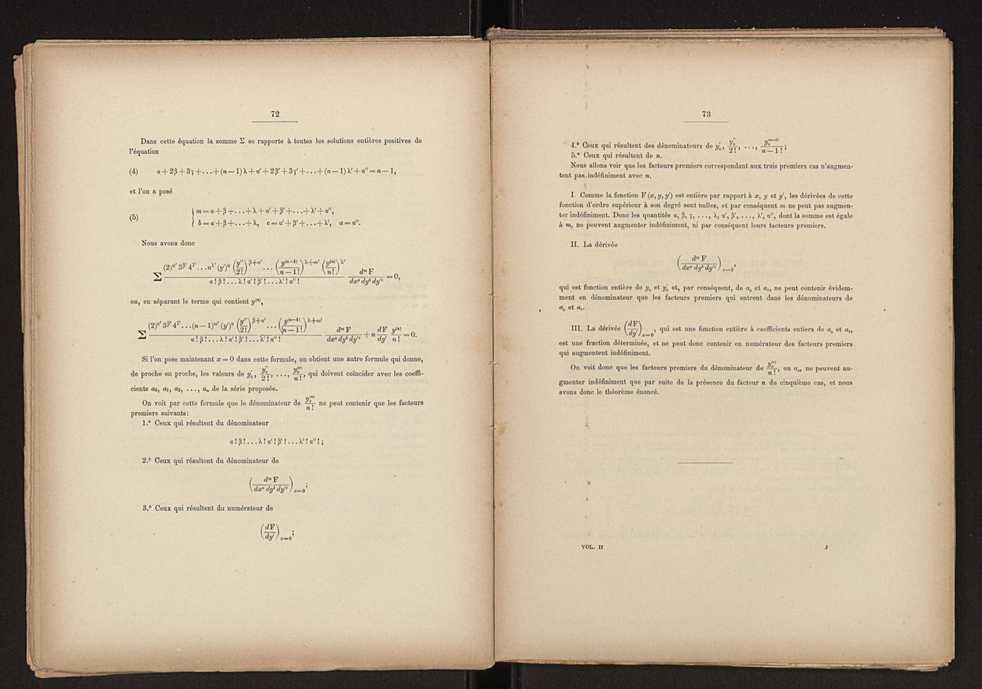 72
Dans cette équation la somme Σ se rapporte à toutes les solutions entières positives de
l'équation
(4) α + 2β + 3γ + ... + (n — 1) λ + α' + 2β' + 3γ' + ... + (n — 1) λ' + α'' = n — 1,
et l'on a posé
(5) { m = α + β + ... + λ + α' + β' + ... + λ' + α'',
b = α + β + ... + λ, c = α' + β' + ... + λ', a = α''.
Nous avons donc
ou, en séparant le terme qui contient y⁽ⁿ⁾,
Si l'on pose maintenant x = 0 dans cette formule, on obtient une autre formule qui donne,
de proche en proche, les valeurs de y'₀, y''₀/2!, ..., y₀⁽ⁿ⁾/n!, qui doivent coïncider avec les coeffi-
cients a₀, a₁, a₂, ..., aₙ de la série proposée.
On voit par cette formule que le dénominateur de y₀⁽ⁿ⁾/n! ne peut contenir que les facteurs
premiers suivants:
1.º Ceux qui résultent du dénominateur
α! β! ... λ! α'! β'! ... λ'! α''!;
2.º Ceux qui résultent du dénominateur de
(dᵐ F / dxᵃ dyᵇ dy'ᶜ)ₓ₌₀;
3.º Ceux qui résultent du numérateur de
(dF / dy')ₓ₌₀;
73
4.º Ceux qui résultent des dénominateurs de y'₀, y''₀/2!, ..., y₀⁽ⁿ⁻¹⁾/n — 1!;
5.º Ceux qui résultent de n.
Nous allons voir que les facteurs premiers correspondant aux trois premiers cas n'augmen-
tent pas indéfiniment avec n.
I. Comme la fonction F (x, y, y') est entière par rapport à x, y et y', les dérivées de cette
fonction d'ordre supérieur à son degré sont nulles, et par conséquent m ne peut pas augmen-
ter indéfiniment. Donc les quantités α, β, γ, ..., λ, α', β', ..., λ', α'', dont la somme est égale
à m, ne peuvent augmenter indéfiniment, ni par conséquent leurs facteurs premiers.
II. La dérivée
(dᵐ F / dxᵃ dyᵇ dy'ᶜ)ₓ₌₀,
qui est fonction entière de y₀ et y'₀ et, par conséquent, de a₀ et a₁, ne peut contenir évidem-
ment en dénominateur que les facteurs premiers qui entrent dans les dénominateurs de
a₀ et a₁.
III. La dérivée (dF / dy')ₓ₌₀, qui est une fonction entière à coefficients entiers de a₀ et a₁,
est une fraction déterminée, et ne peut donc contenir en numérateur des facteurs premiers
qui augmentent indéfiniment.
On voit donc que les facteurs premiers du dénominateur de y₀⁽ⁿ⁾/n!, ou aₙ, ne peuvent au-
gmenter indéfiniment que par suite de la présence du facteur n du cinquième cas, et nous
avons donc le théorème énoncé.
VOL. II J